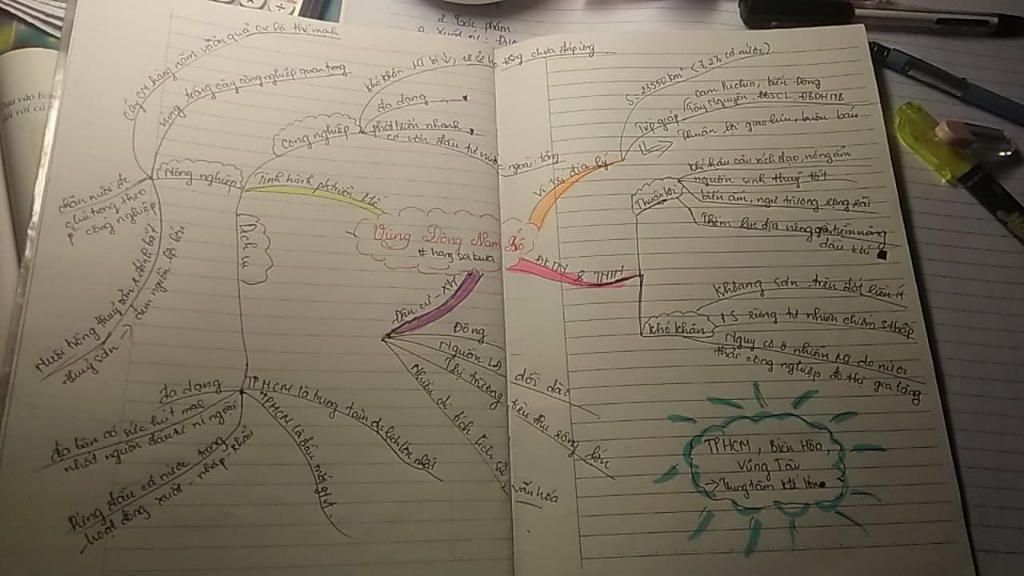 2. Tác phẩm
a. Xuất xứ:
Vùng Đông Nam Bộ
# hang sa kura
Vị trí địa lý
S: 23550 km² (7,2% cả nước)
Tiếp giáp
Cam Puchia, biển Đông
Tây Nguyên, ĐBSCL, DHNTB
Thuận lợi giao lưu, buôn bán
ĐKTN & TNTN
Thuận lợi
Khí hậu cận xích đạo, nóng ẩm
nguồn sinh thuỷ tốt
biển ấm, ngư trường rộng lớn
Thềm lục địa nông, giàu tiềm năng
dầu khí
Khó khăn
Khoáng sản trên đất liền ít
S rừng tự nhiên chiếm % thấp
Nguy cơ ô nhiễm do nước
thải công nghiệp, đô thị gia tăng
TPHCM, Biên Hòa,
Vũng Tàu
→ Trung tâm KT lớn
Dân cư - XH
Đông
Nguồn LĐ dồi dào
Thị trường tiêu thụ rộng lớn
Nhiều di tích lịch sử văn hóa
Tình hình phát triển KT
Công nghiệp
chưa đáp ứng
đa dạng
phát triển nhanh
có vốn đầu tư nước ngoài tăng
Nông nghiệp
vùng trồng cây công nghiệp quan trọng
Cây CN hàng năm, cây ăn quả có là thế mạnh
chăn nuôi
chú trọng theo
công nghiệp
Nuôi trồng thuỷ sản, đánh bắt
thuỷ sản →
đem nguồn lợi lớn
Dịch vụ
đa dạng
địa bàn có sức hút mạnh
nhất nguồn đầu tư nc ngoài
Đứng đầu cả nước trong
hoạt động xuất - nhập khẩu
TPHCM là trung tâm du lịch lớn nhất
TPHCM là đầu mối GTVT